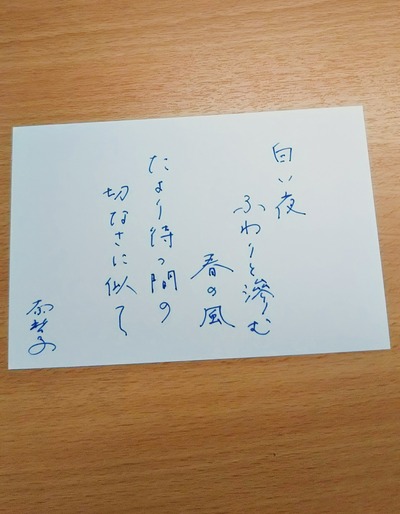 白い夜
ふわりと滲む
春の風
たより待つ間の
切なさに似て